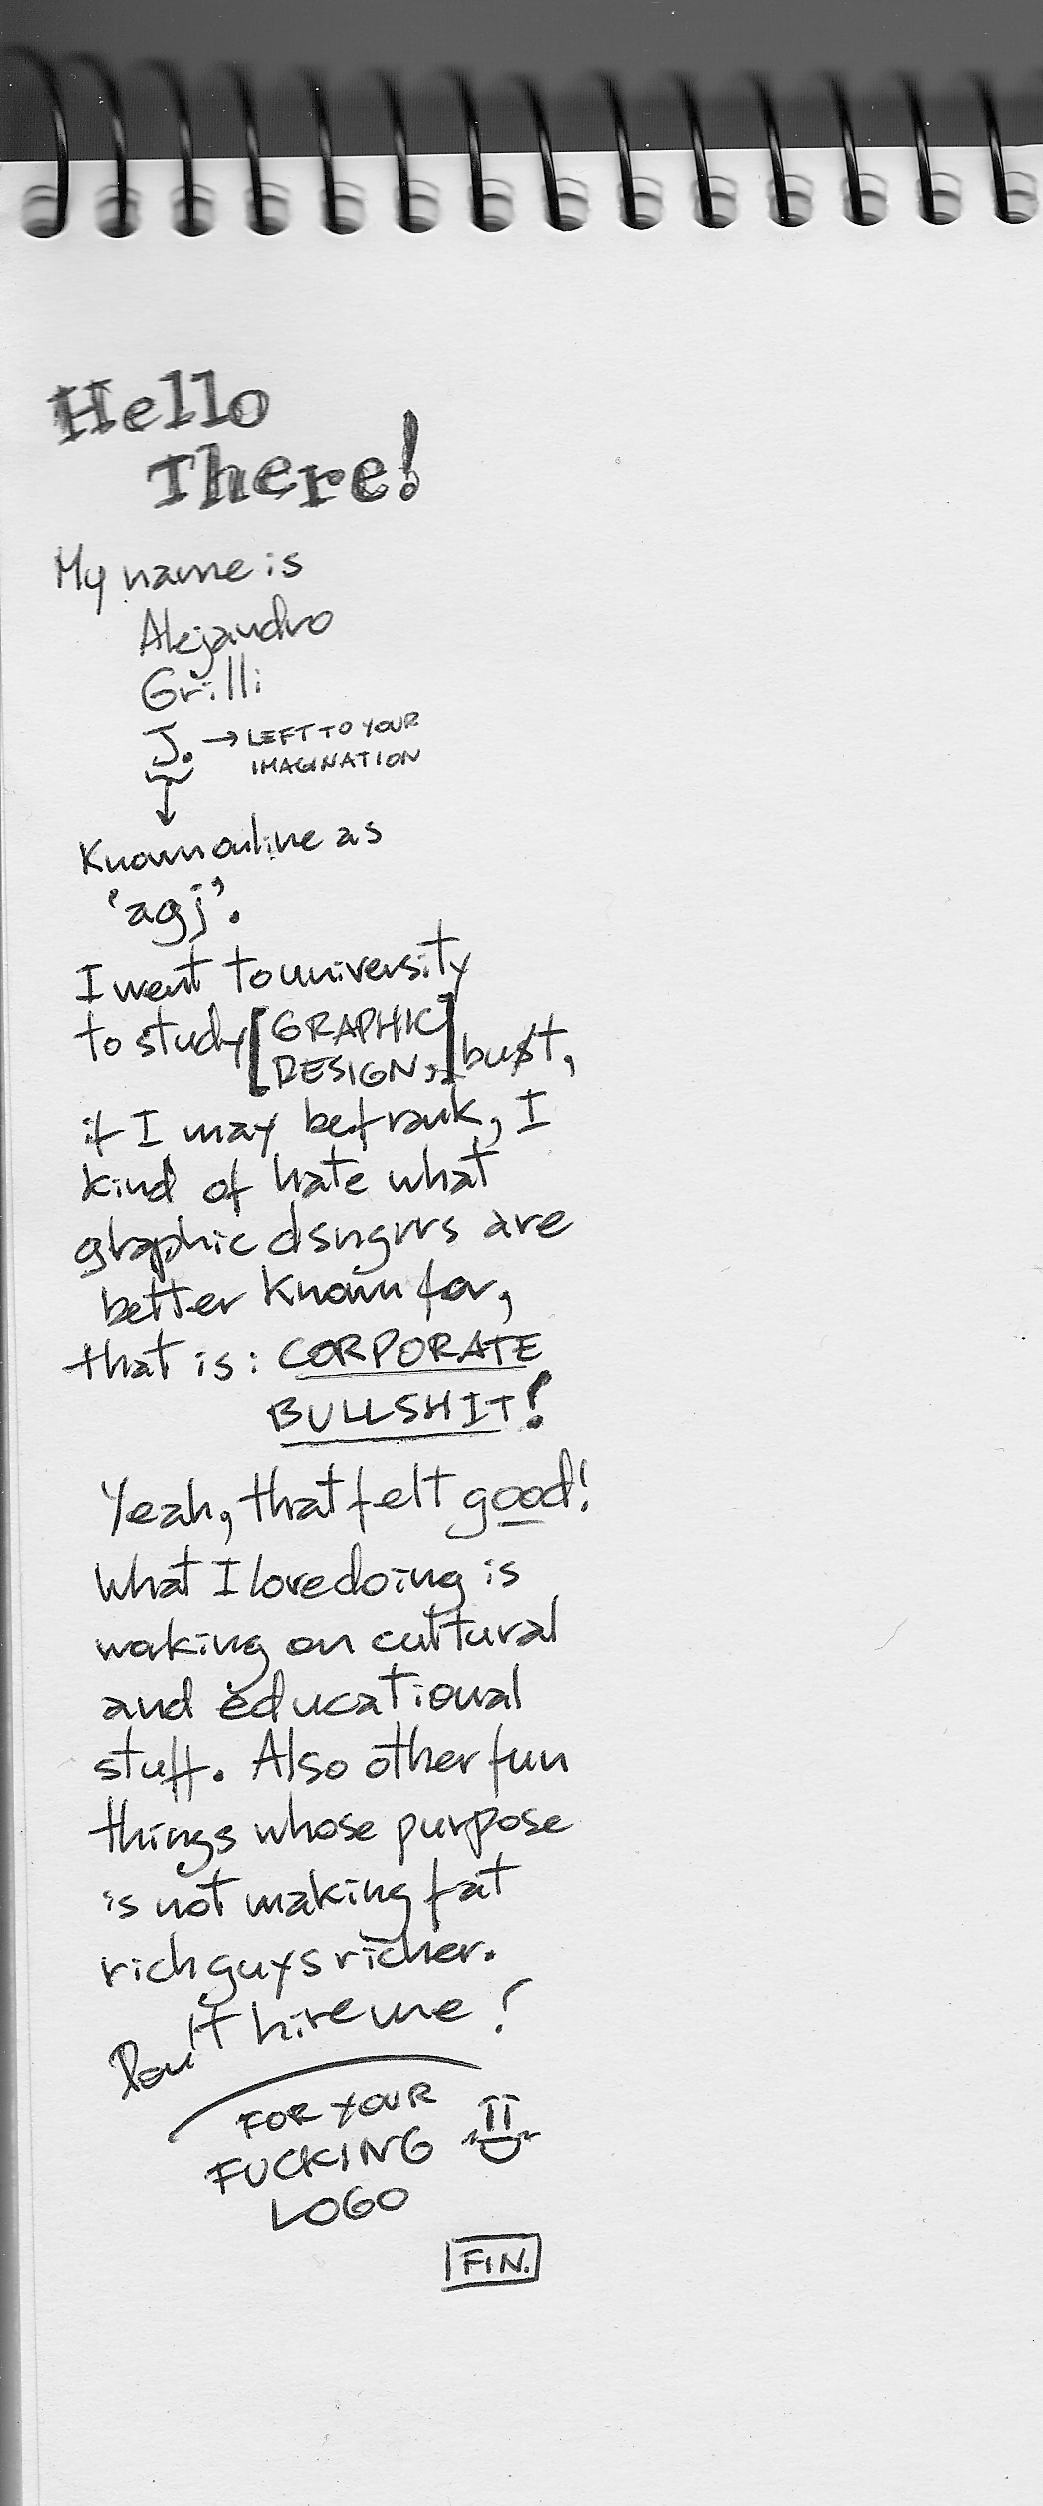 Hello
There!
My name is
Alejandro
Grilli
J. → LEFT TO YOUR
IMAGINATION
↓
Known online as
'agj'.
I went to university
to study [GRAPHIC
DESIGN,] but,
if I may be frank, I
kind of hate what
graphic dsngrrs are
better known for,
that is: CORPORATE
BULLSHIT!
Yeah, that felt good!
What I love doing is
working on cultural
and educational
stuff. Also other fun
things whose purpose
is not making fat
rich guys richer.
Don't hire me!
FOR YOUR
FUCKING
LOGO
FIN.